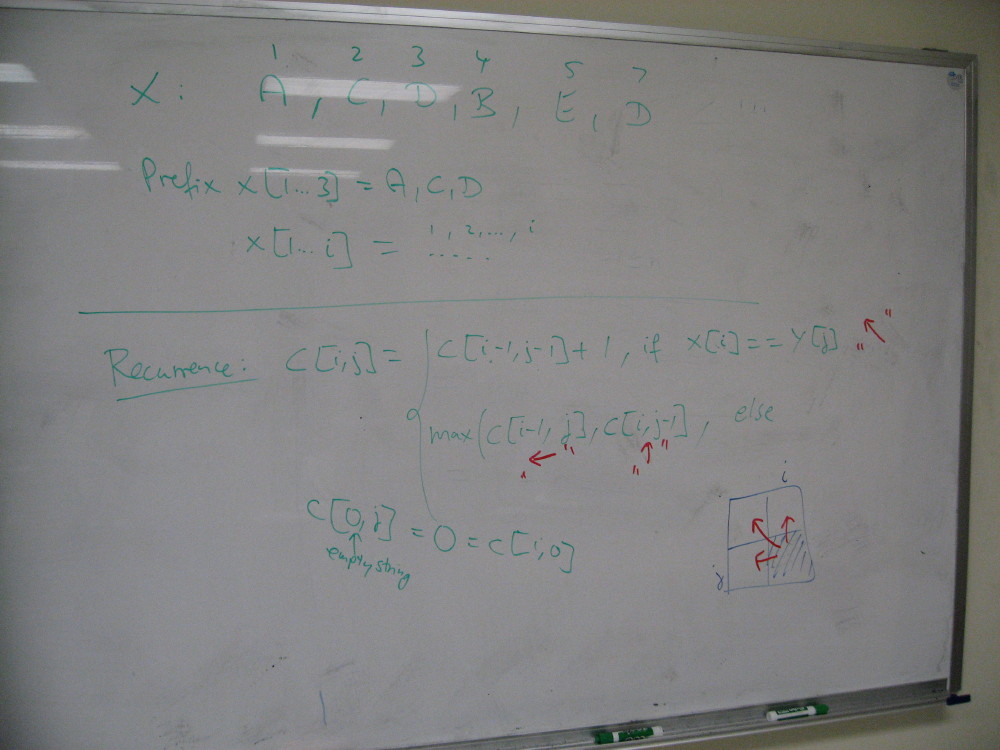 1 2 3 4 5 7
X: A, C, D, B, E, D ...
Prefix x[1...3] = A, C, D
1, 2, ..., i
x[1...i] = .....
Recurrence: C[i,j] = { C[i-1,j-1]+1, if x[i]==Y[j] "↖"
max(C[i-1, j], C[i,j-1], else
"←" "↑"
C[0,j] = 0 = C[i,0]
↑
empty string
i
j